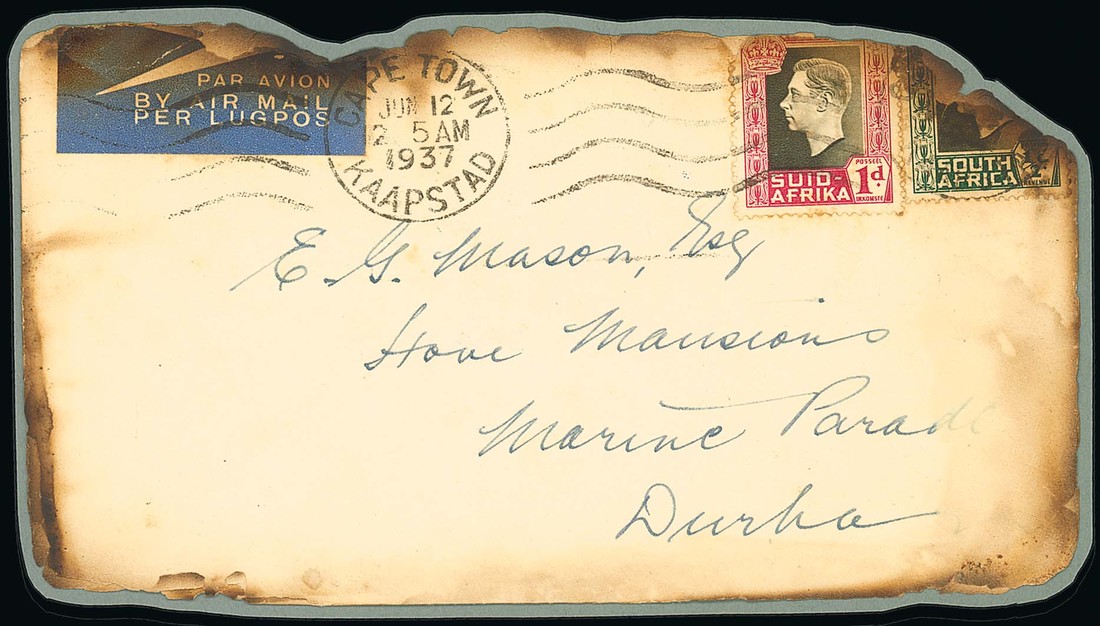 PAR AVION
BY AIR MAIL
PER LUGPOS
CAPE TOWN
JUN 12
2 5 AM
1937
KAAPSTAD
POSSEËL
SUID-
AFRIKA
1d.
INKOMSTE
SOUTH
AFRICA
REVENUE
E. G. Mason, Esq
Hove Mansions
Marine Parad
Durba